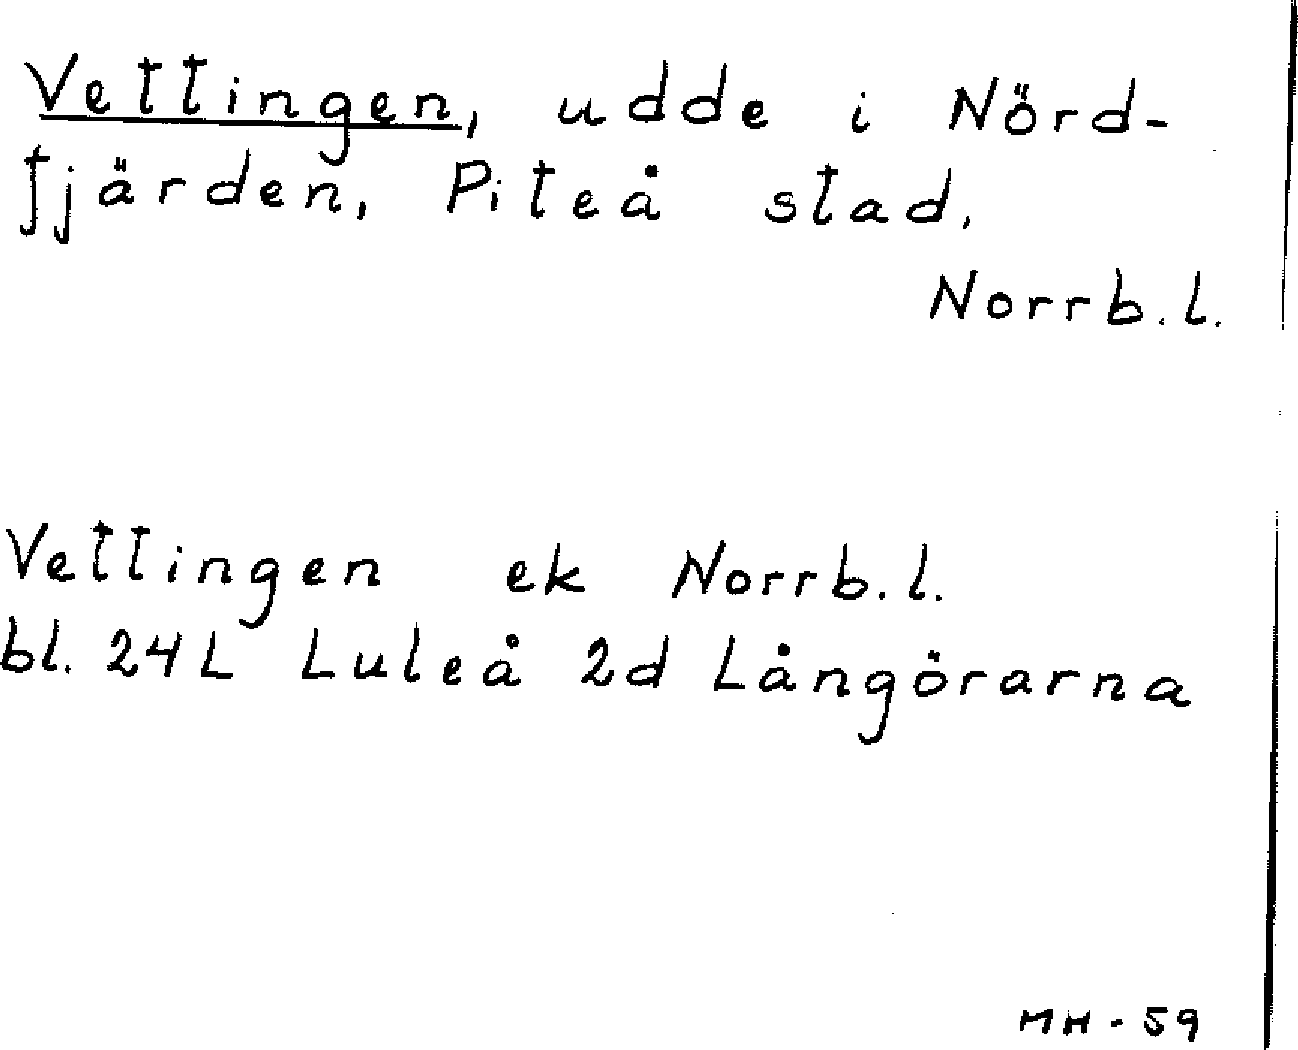 Vettingen, udde i Nörd-
fjärden, Piteå stad,
Norrb.l.
Vettingen ek Norrb.l.
bl. 24L Luleå 2d Långörarna
MH-59